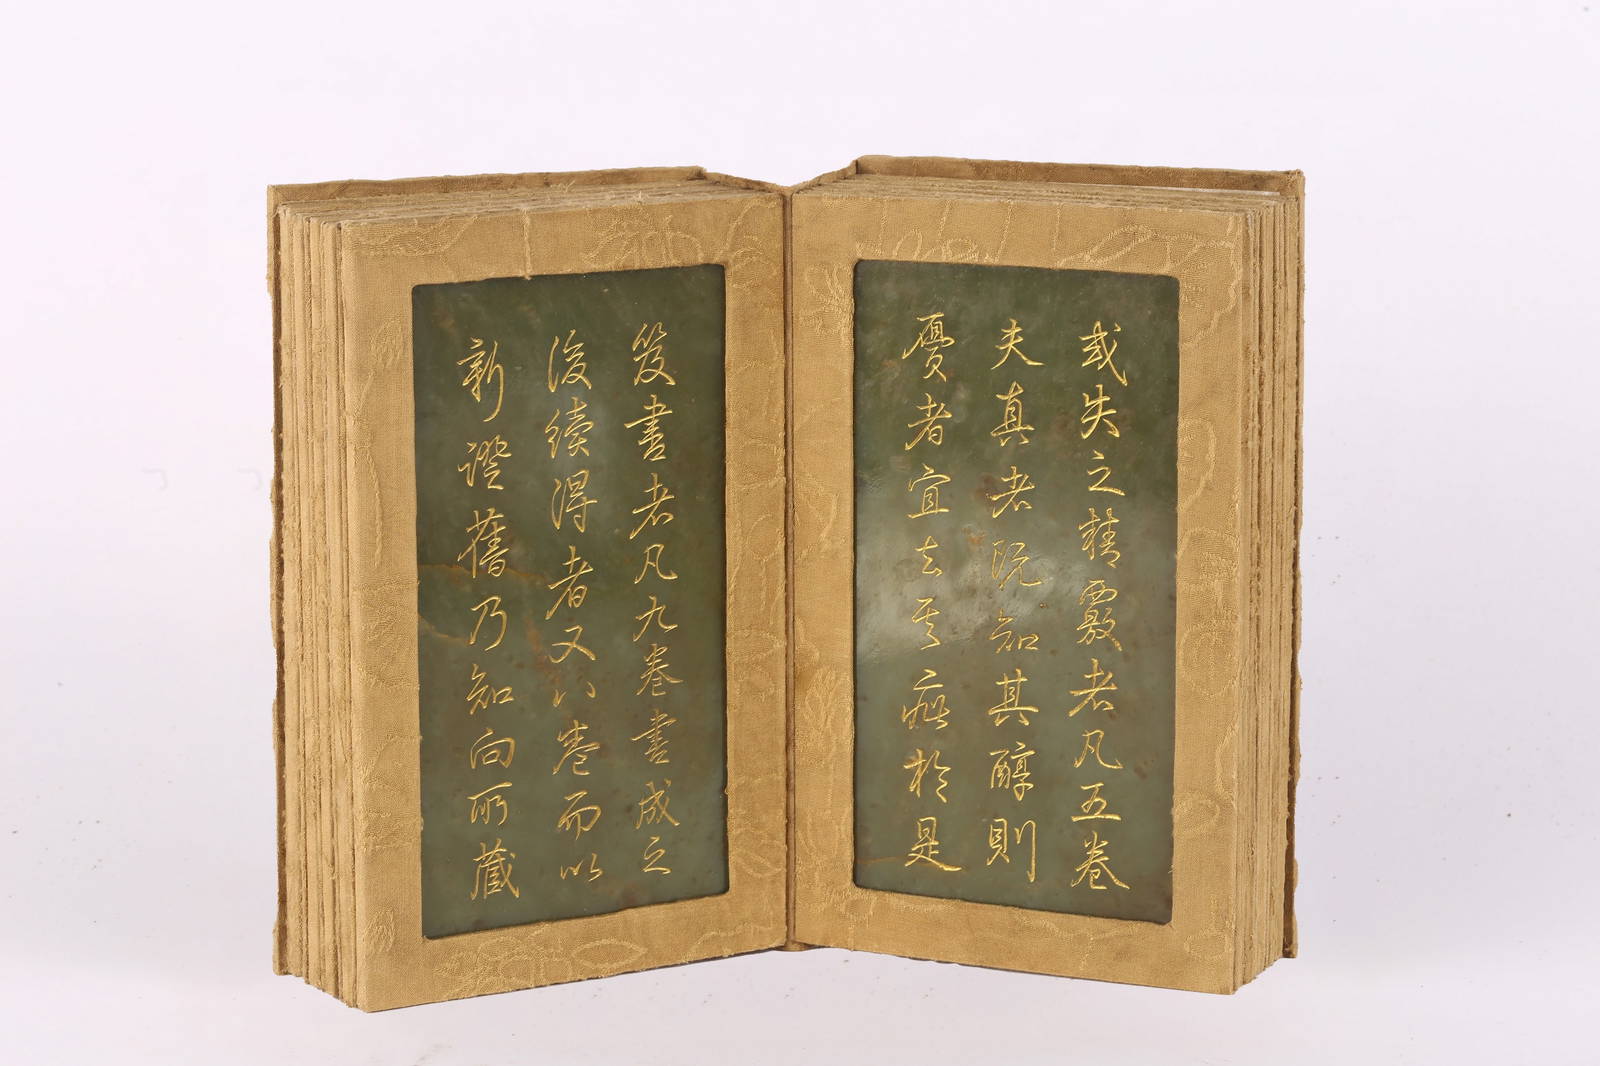 或失之精覈者凡五卷
夫真者既知其醇則
贋者宜去其疵於是
笈書者凡九卷書成之
後續得者又八卷而以
新證舊乃知向所藏